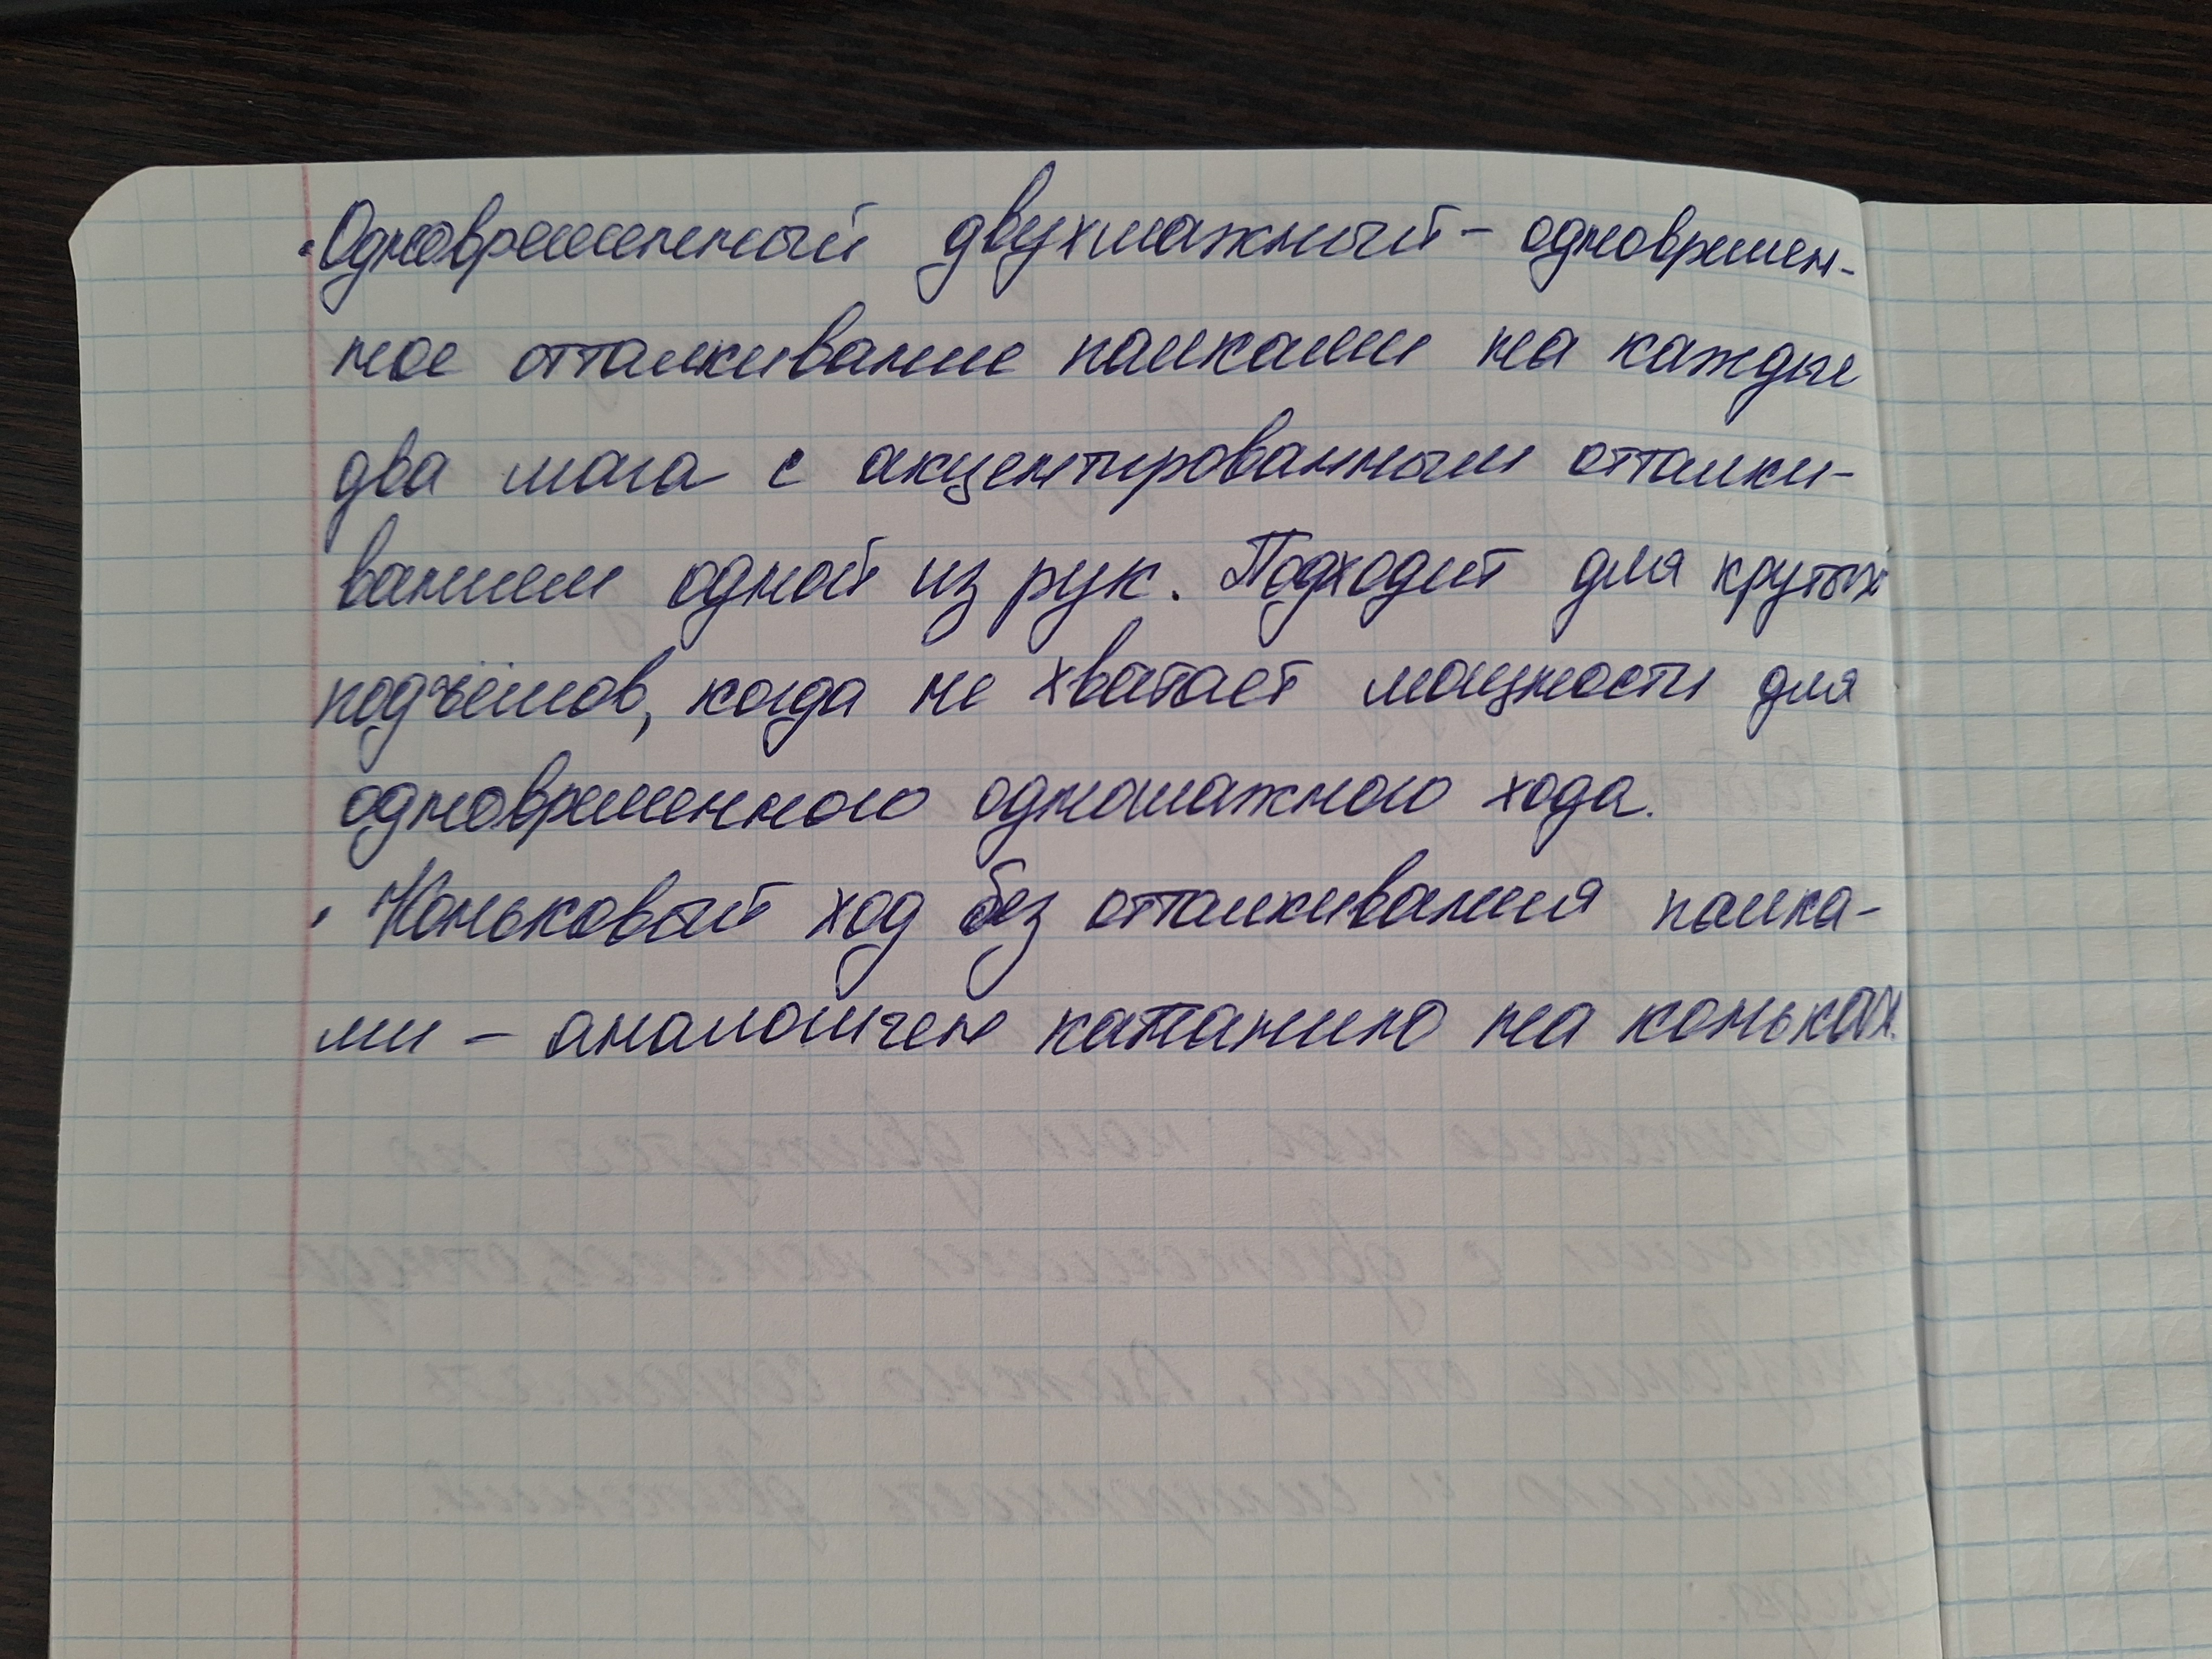 • Одновременный двухшажный – одновремен-
ное отталкивание палками на каждые
два шага с акцентированным отталки-
ванием одной из рук. Подходит для крутых
подъёмов, когда не хватает мощности для
одновременного одношажного хода.
• Коньковый ход без отталкивания палка-
ми – аналогичен катанию на коньках.